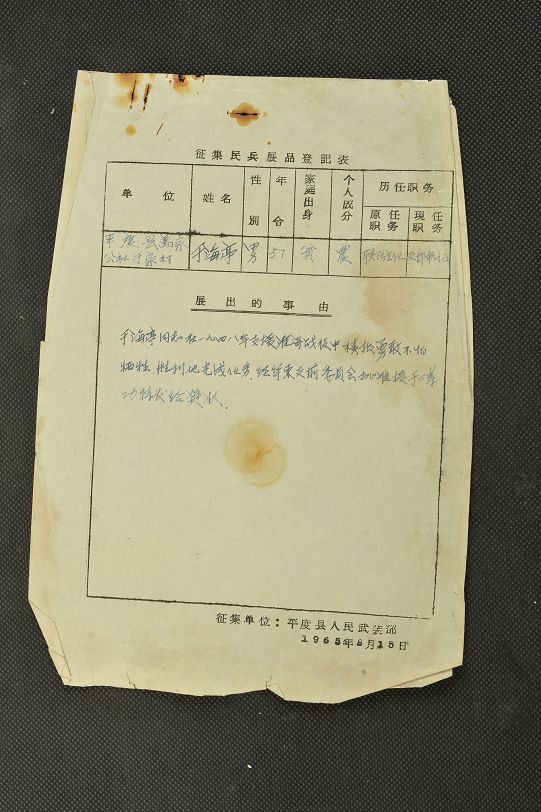 征集民兵展品登记表
单位 姓名 性别 年令 家庭出身 个人成分 历任职务
原任职务 现任职务
平度县万家公社于家村 于海亭 男 57 贫 农 支部书记
展出的事由
于海亭同志在一九四八年支援淮海战役中积极勇敢不怕
牺牲 胜利地完成任务 经华东支前委员会批准授予二等
功特发给奖状.
征集单位:平度县人民武装部
1965年8月15日